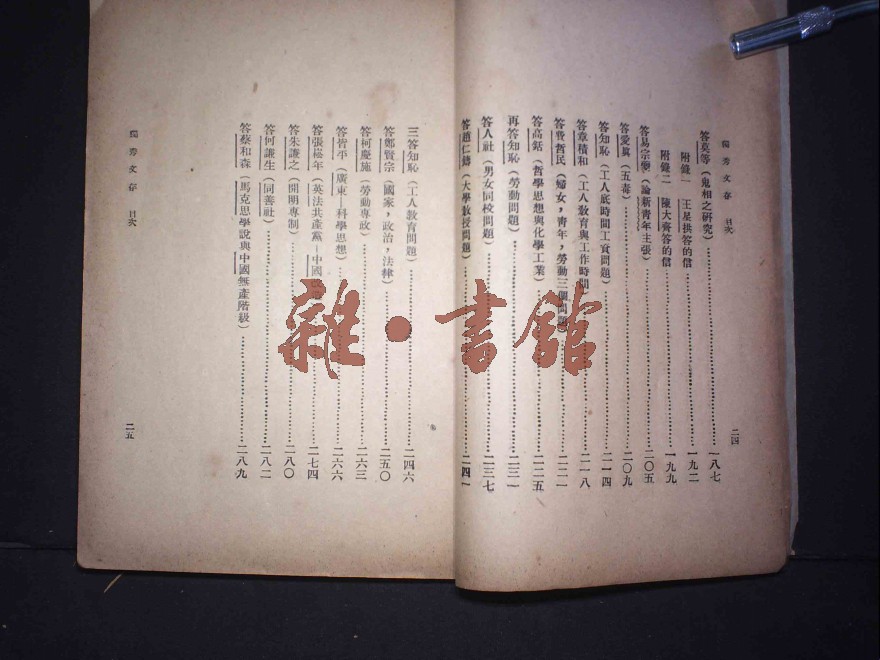 獨秀文存 目次
二四
答莫等（鬼相之研究）……一八七
附錄一 王星拱答的信……一九二
附錄二 陳大齊答的信……一九九
答易宗夔（論新青年主張）……二〇五
答愛眞（五毒）……二〇九
答知恥（工人底時間工資問題）……二一四
答章積和（工人敎育與工作時間……二一八
答費哲民（婦女，青年，勞動三個問題）……二二一
答高銛（哲學思想與化學工業）……二二五
再答知恥（勞動問題）……二三一
答人社（男女同校問題）……二三七
答趙仁鑄（大學敎授問題）……二四一
三答知恥（工人敎育問題）……二四六
答鄭賢宗（國家，政治，法律）……二五〇
答柯慶施（勞動專政）……二六三
答皆平（廣東—科學思想）……二六六
答張崧年（英法共產黨—中國……二七四
答朱謙之（開明專制）……二八〇
答何謙生（同善社）……二八二
答蔡和森（馬克思學說與中國無產階級）……二八九
獨秀文存 目次
二五
雜·書館